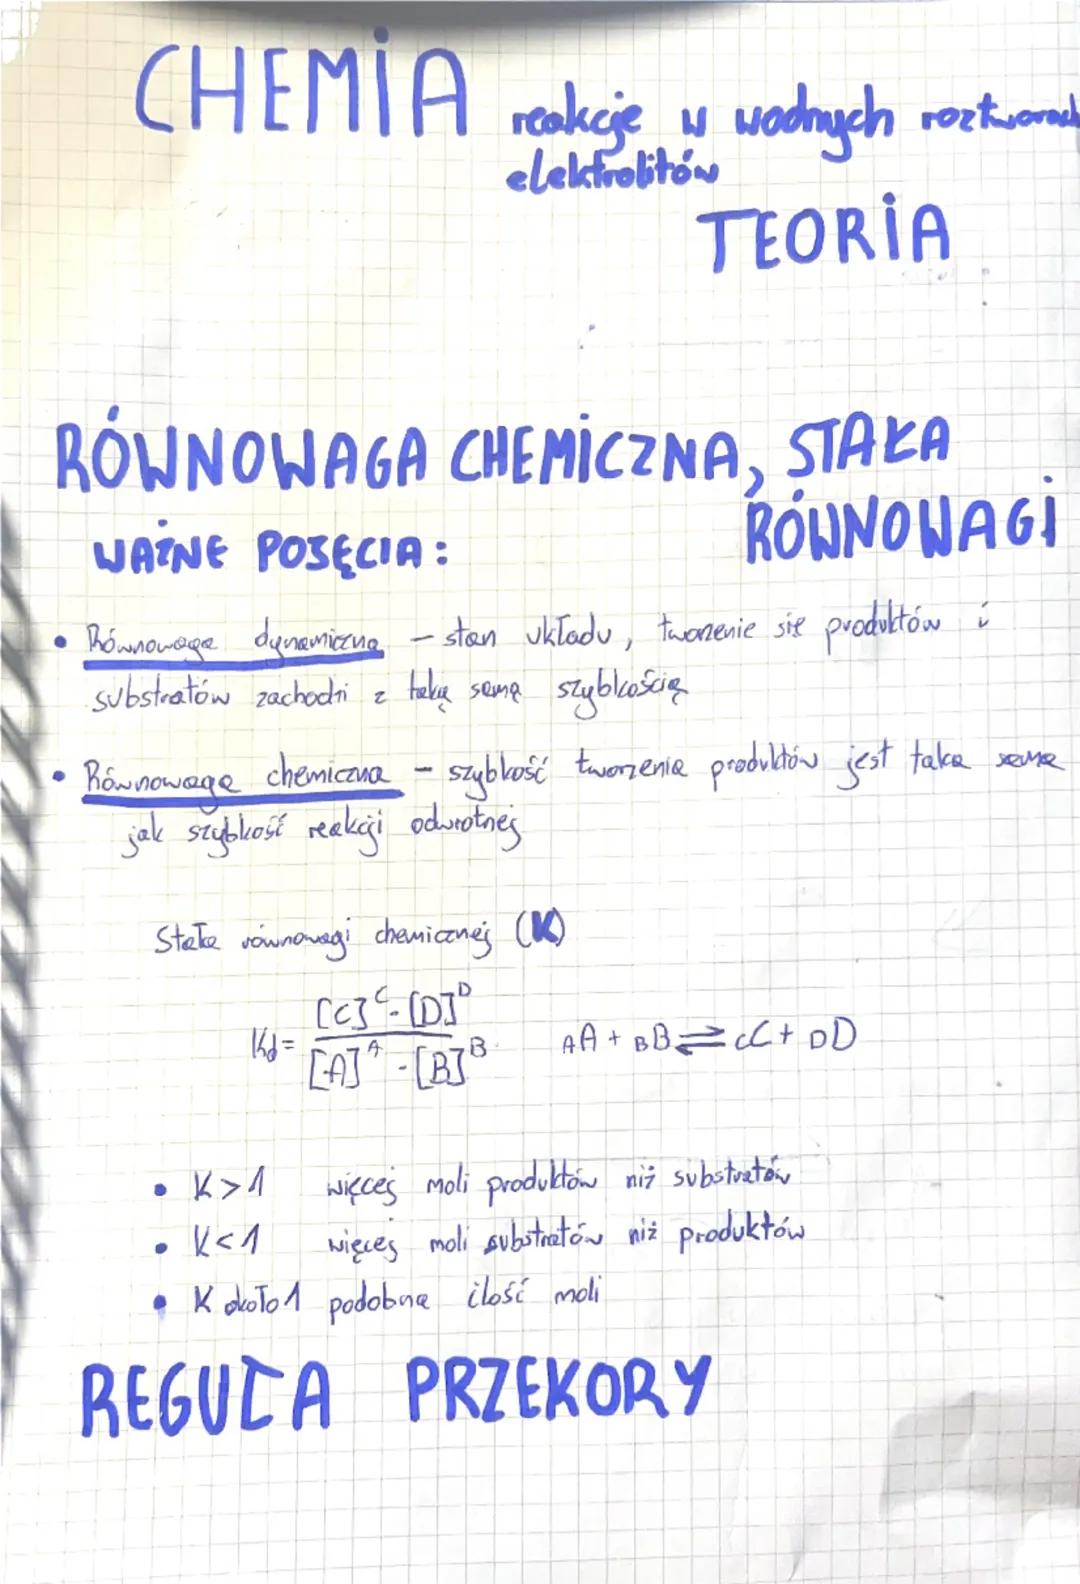 CHEMIA
reakcje w wodnych roztworach
elektrolitów
TEORIA
RÓWNOWAGA CHEMICZNA, STAŁA
RÓWNOWAGI
WAŻNE POJĘCIA:
• Równowaga dynamiczna - stan układu, tworzenie się produktów i
substratów zachodzi z taką samą szybkością
• Równowaga chemiczna - szybkość tworzenia produktów jest taka sama
jak szybkość reakcji odwrotnej
Stała równowagi chemicznej (K)
Kd = [C]^C · [D]^D / [A]^A · [B]^B
AA + BB ⇌ CC + DD
• K > 1 więcej moli produktów niż substratów
• K < 1 więcej moli substratów niż produktów
• K około 1 podobna ilość moli
REGUŁA PRZEKORY